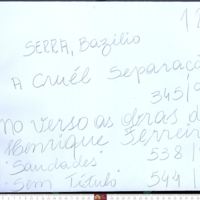 12
SERRA, Bazilio
A Cruél Separaçã
345/9
no verso as obras d
Henrique Ferrei
"Saudades" 538/
"Sem Título" 544/